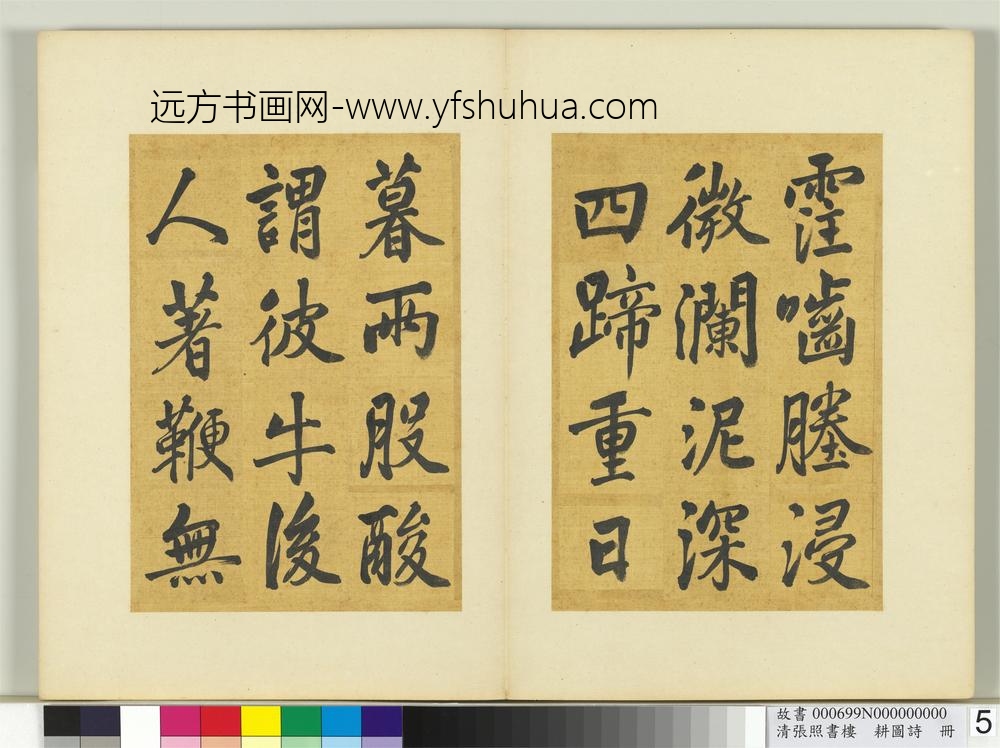 远方书画网-www.yfshuhua.com
霔噛塍浸
微瀾泥深
四蹄重日
暮兩股酸
謂彼牛後
人著鞭無
故書 000699N000000000
清張照書樓 耕圖詩 冊
5